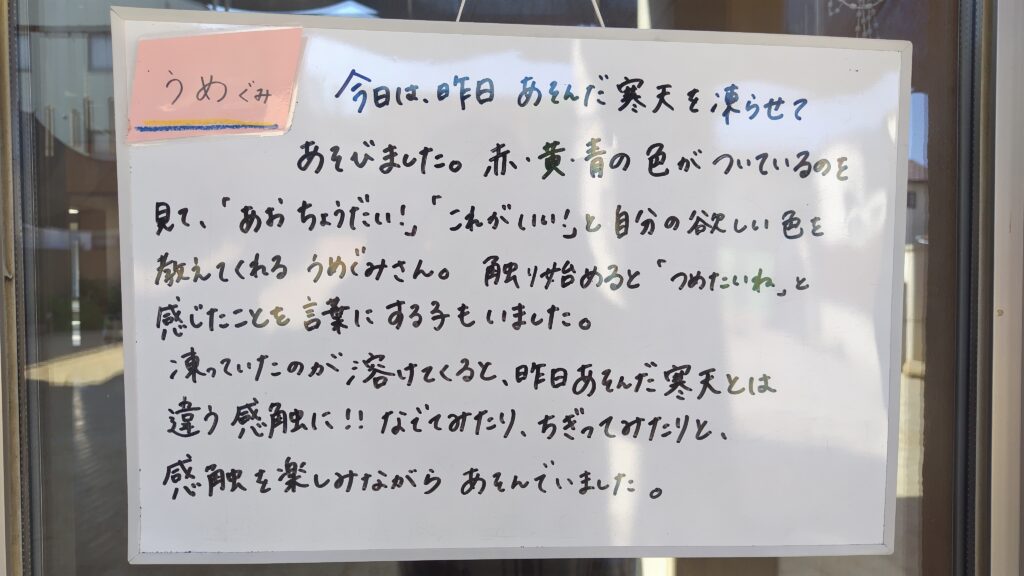 うめぐみ
今日は、昨日 あそんだ寒天を凍らせて
あそびました。赤・黄・青の色がついているのを
見て、「あおちょうだい!」「これがいい!」と自分の欲しい色を
教えてくれる うめぐみさん。 触り始めると「つめたいね」と
感じたことを言葉にする子もいました。
凍っていたのが溶けてくると、昨日あそんだ寒天とは
違う感触に!! なでてみたり、ちぎってみたりと、
感触を楽しみながら あそんでいました。